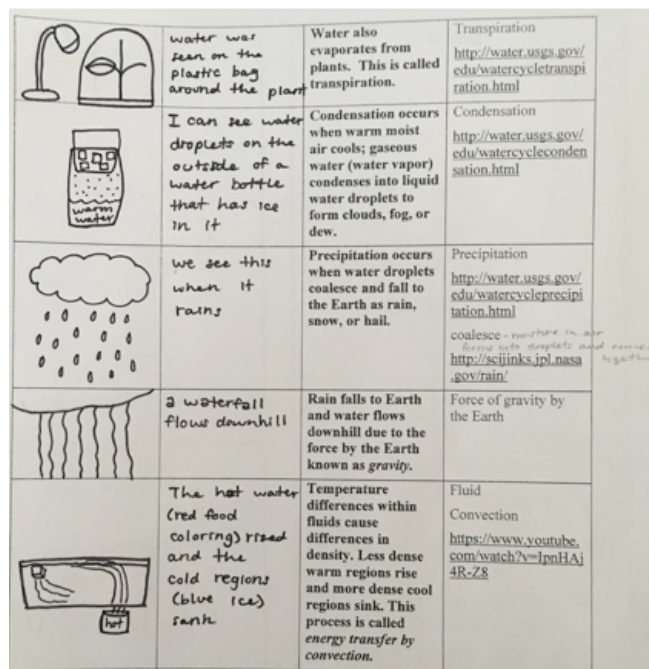 water was
seen on the
plastic bag
around the plant
Water also
evaporates from
plants. This is called
transpiration.
Transpiration
http://water.usgs.gov/
edu/watercycletranspi
ration.html
warm
water
I can see water
droplets on the
outside of a
water bottle
that has ice
in it
Condensation occurs
when warm moist
air cools; gaseous
water (water vapor)
condenses into liquid
water droplets to
form clouds, fog, or
dew.
Condensation
http://water.usgs.gov/
edu/watercycleconden
sation.html
we see this
when it
rains
Precipitation occurs
when water droplets
coalesce and fall to
the Earth as rain,
snow, or hail.
Precipitation
http://water.usgs.gov/
edu/watercycleprecipi
tation.html
coalesce - moisture in air
forms into droplets and
together
http://scijinks.jpl.nasa
.gov/rain/
a waterfall
flows downhill
Rain falls to Earth
and water flows
downhill due to the
force by the Earth
known as gravity.
Force of gravity by
the Earth
hot
The hot water
(red food
coloring) rised
and the
cold regions
(blue ice)
sank
Temperature
differences within
fluids cause
differences in
density. Less dense
warm regions rise
and more dense cool
regions sink. This
process is called
energy transfer by
convection.
Fluid
Convection
https://www.youtube.
com/watch?v=IpnHAj
4R-Z8